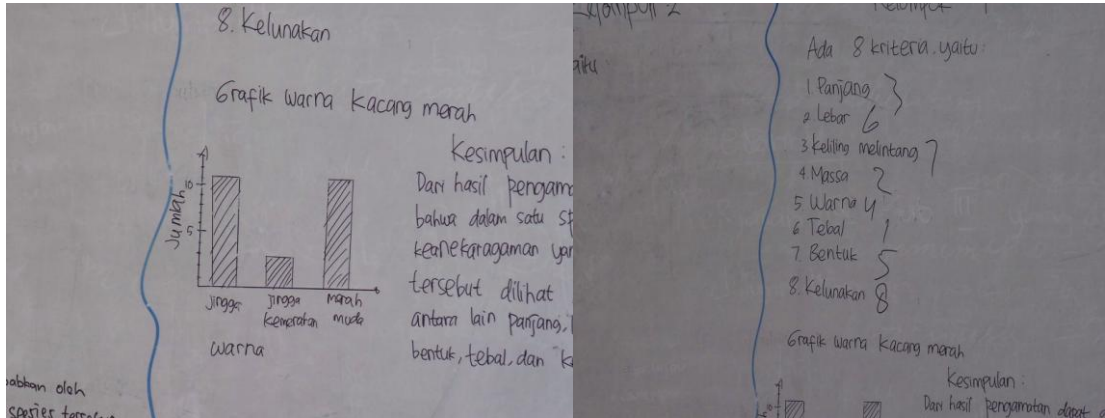 8. Kelunakan
Grafik warna kacang merah
Jumlah
10
5
Jingga
Jingga kemerahan
merah muda
warna
Kesimpulan :
Dari hasil
bahwa dalam satu
keanekaragaman
tersebut dilihat
antara lain panjang,
bentuk, tebal, dan
oleh
spesies
2
Ada 8 kriteria, yaitu:
1. Panjang 3
2. Lebar 6
3 keliling melintang 7
4. Massa 2
5 Warna 4
6 Tebal 1
7. Bentuk 5
8. Kelunakan 8
Grafik warna kacang merah
Kesimpulan :
Dari hasil pengamatan dapat